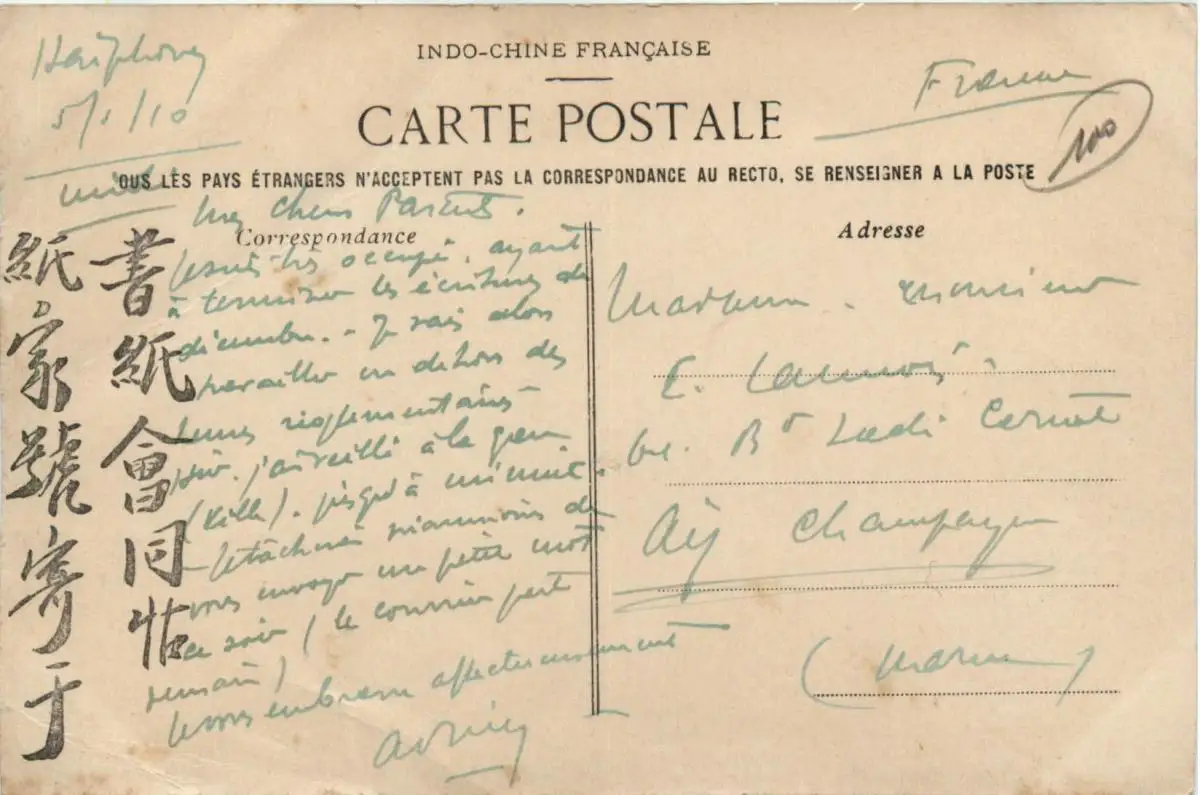 Haïphong
5/1/10
midi
France
100
INDO-CHINE FRANÇAISE
CARTE POSTALE
OUS LES PAYS ÉTRANGERS N'ACCEPTENT PAS LA CORRESPONDANCE AU RECTO, SE RENSEIGNER A LA POSTE
Correspondance
Adresse
Mes chers Parents.
Je suis très occupé, ayant
à terminer les écritures de
décembre. - Je vais alors
travailler en dehors des
heures réglementaires
soir. j'ai veillé à la gare
(ville). jusqu'à minuit.
tâcherai néanmoins de
vous envoyer un petit mot
ce soir (le courrier part
demain)
Je vous embrasse affectueusement
Madame. Monsieur
E.
Bd
Ay Champagne
(Marne)
書紙會同帖
紙家號寄于